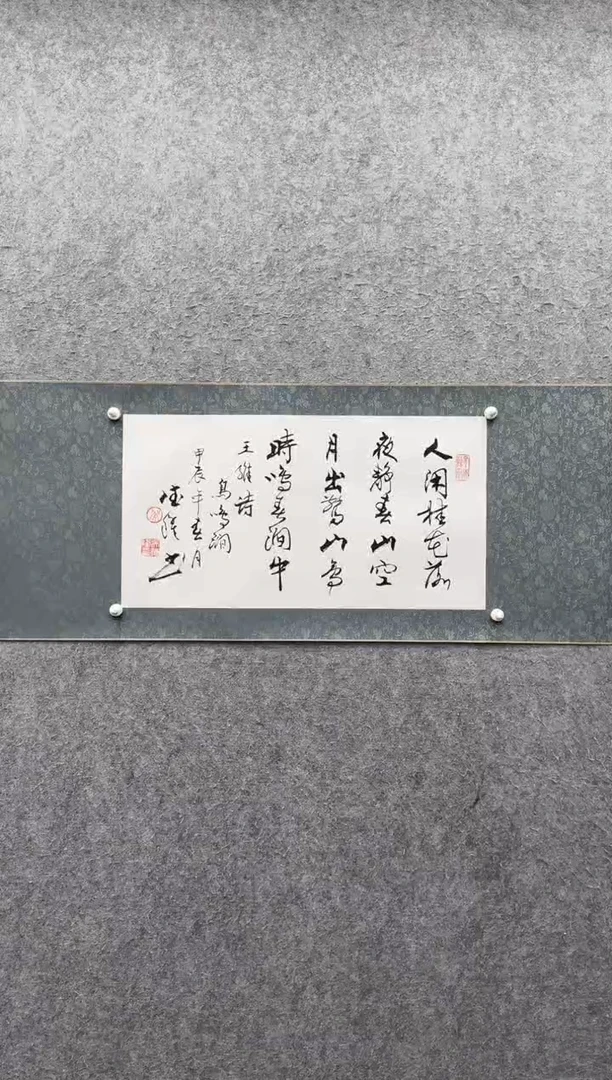 人闲桂花落
夜静春山空
月出惊山鸟
時鸣春涧中
王維诗
鸟鸣涧
甲辰年春月
书